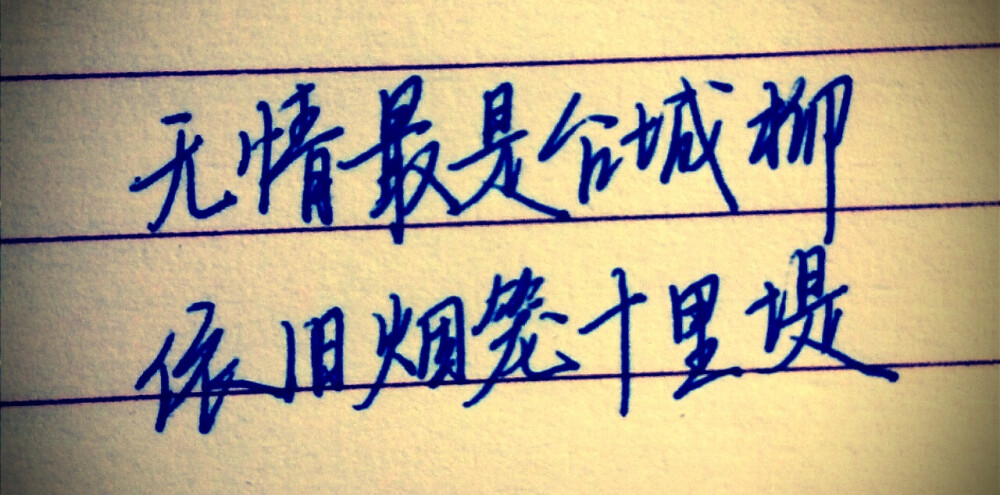 无情最是台城柳
依旧烟笼十里堤